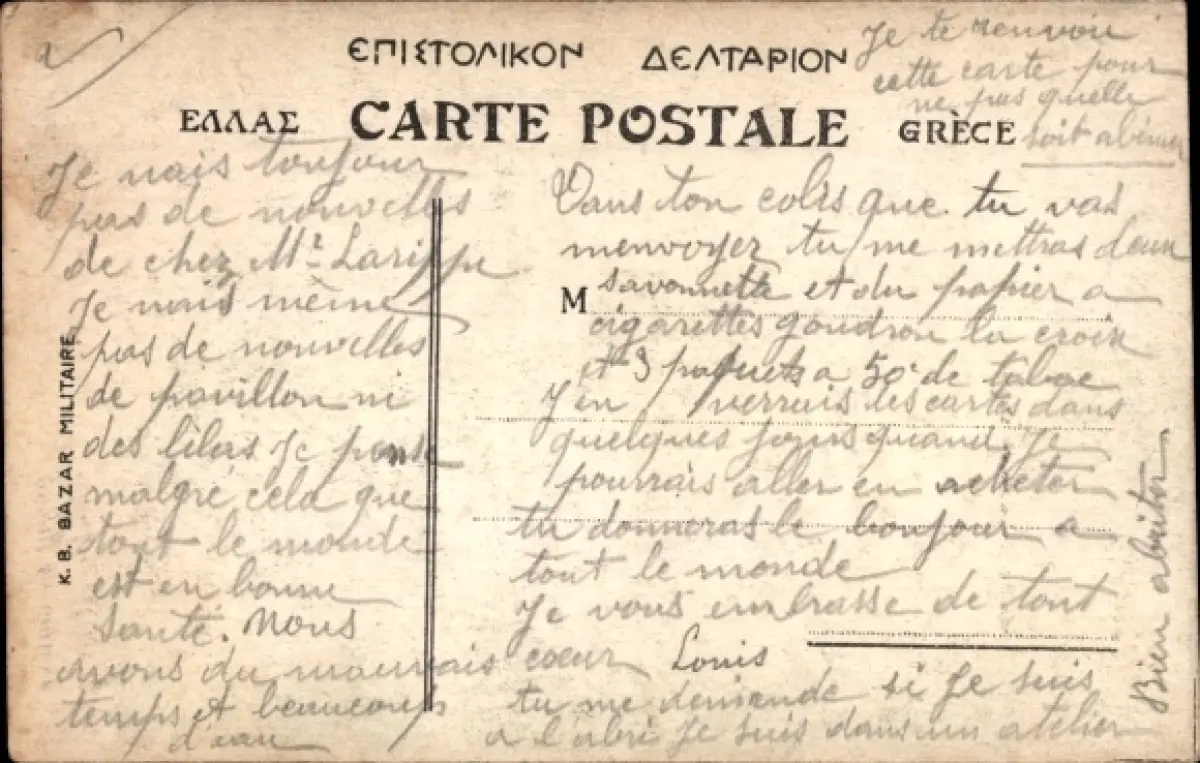 ΕΠΙΣΤΟΛΙΚΟΝ ΔΕΛΤΑΡΙΟΝ
ΕΛΛΑΣ CARTE POSTALE GRÈCE
K. B. BAZAR MILITAIRE
M
Je te renvoie
cette carte pour
ne pas quelle
soit abimer
Je nais toujour
pas de nouvelles
de chez Mr Larippe
Je nais même
pas de nouvelles
de pavillon ni
des lilas Je pense
malgré cela que
tout le monde
est en bonne
Santé. Nous
avons du mauvais
temps et beaucoup
d'eau
Dans ton colis que tu vas
menvoyer tu me mettras deux
savonnette et du papier a
cigarettes goudron la croix
et 3 paquets a 50c de tabac
J'en verrais les cartes dans
quelques jours quand Je
pourrais aller en acheter
tu donneras le bonjour a
tout le monde
Je vous embrasse de tout
coeur Louis
tu me demande si Je suis
a l'abri Je suis dans un atelier
Bien abriter